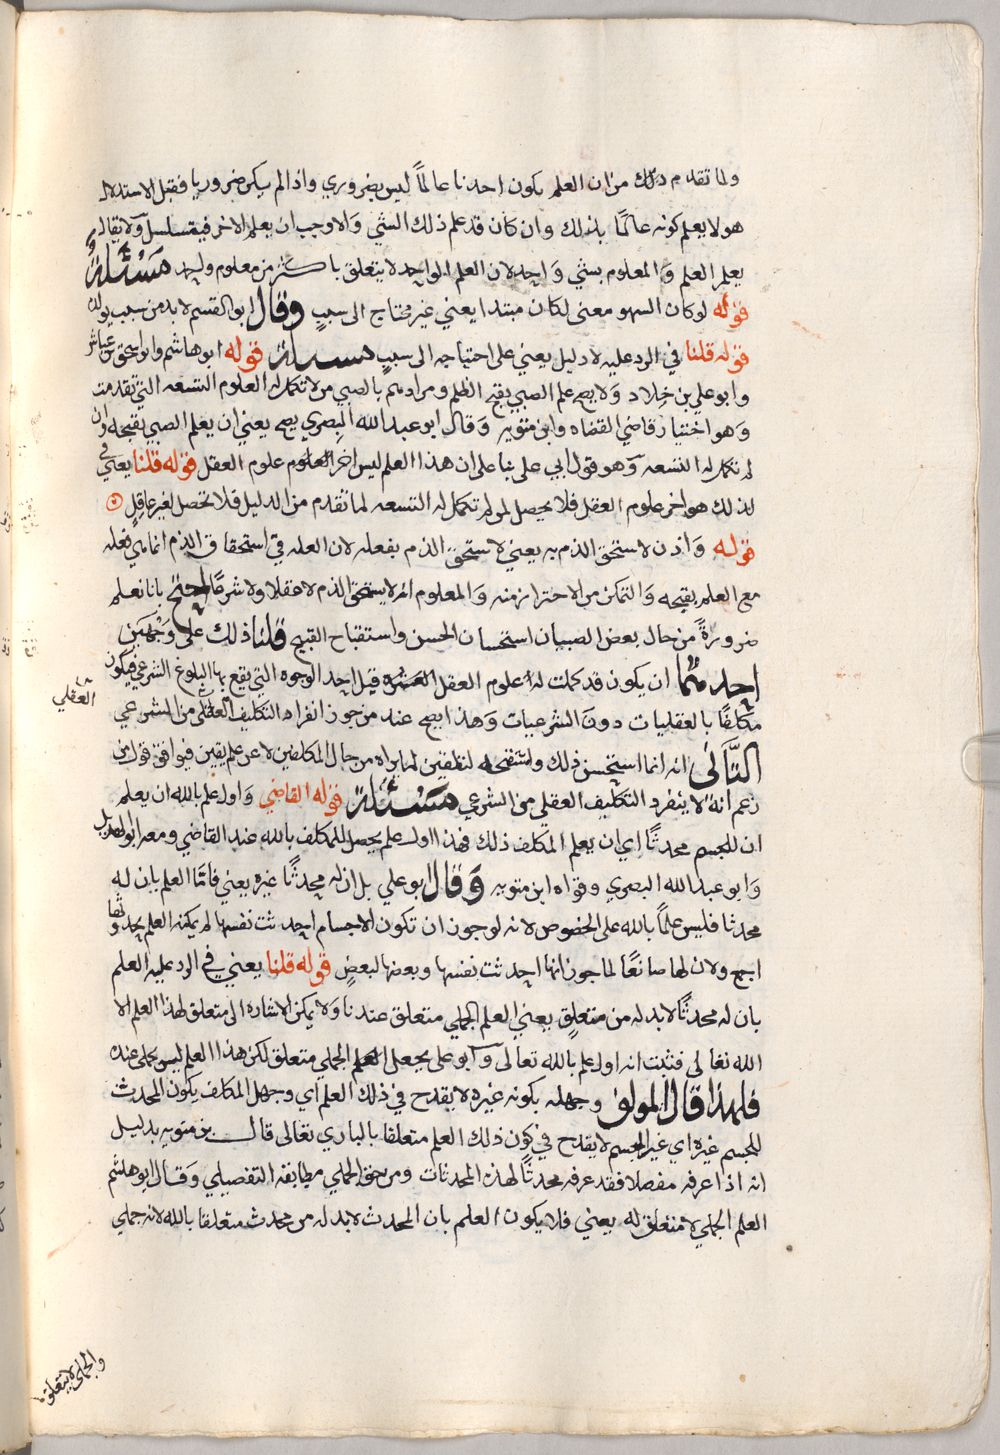 ولما تقدم ذلك من ان العلم بكون احدنا عالماً ليس بضروري واذا لم يكن ضروريا فقبل الاستدلال
هو لا يعلم كونه عالمًا بذلك وان كان قد علم ذلك الشي والا وجب ان يعلم الاخر فيتسلسل ولا يقال
يعلم العلم والمعلوم بشي واحد لان العلم الواحد لا يتعلق باكثر من معلوم واحد مَسْئَلَةٌ
قوله لو كان السهو معنى لكان مبتدا يعني غير محتاج الى سبب وقال ابو القسم لا بد من سبب يولده
قوله قلنا في الرد عليه لا دليل يعني على احتياجه الى سبب مسئلة قوله ابو هاشم وابو اسحق بن عياش
وابو علي بن خلاد ولا يصح علم الصبي بقبح الظلم ومرادهم بالصبي من لا تكمل له العلوم التسعه التي تقدمت
وهو اختيار قاضي القضاه وابن متويه وقال ابو عبد الله البصري يصح يعني ان يعلم الصبي بقبحه وان
لم تكمل له التسعه وهو قول ابي علي بنا على ان هذا العلم ليس اخر العلوم علوم العقل قوله قلنا يعني في
لذلك هو اخر علوم العقل فلا يحصل لمن لم تكمل له التسعه لما تقدم من الدليل فلا تحصل لغير عاقل
قوله واذن لاستحق الذم به يعني لاستحق الذم بفعله لان العله في استحقاق الذم انما هي فعله
مع العلم بقبحه والتمكن من الاحتراز منه والمعلوم انه لا يستحق الذم لا عقلا ولا شرعًا احتج بانا نعلم
ضرورةً من حال بعض الصبيان استحسان الحسن واستقباح القبيح قلنا ذلك على وجهين
احدهما ان يكون قد كملت له علوم العقل العشره قبل احد الوجوه التي يقع بها البلوغ الشرعي فيكون
مكلفًا بالعقليات دونَ الشرعيات وهذا يصح عند من جوز انفراد التكليف العقلي من الشرعي
العقلي
الثاني انه انما استحسن ذلك واستقبحه لتلقين لما يراه من حال المكلفين لا عن علم يقين فيوافق قول من
زعم انه لا ينفرد التكليف العقلي من الشرعي مَسْئَلَةٌ قوله القاضي واول علم بالله ان يعلم
ان للجسم محدثًا اي ان يعلم المكلف ذلك فهذا اول علم يحصل للمكلف بالله عند القاضي ومعه ابو الهذيل
وابو عبد الله البصري وقواه ابن متويه وقال ابو علي بل ان له محدثًا غيره يعني فاما العلم بان له
محدثا فليس علماً بالله على الخصوص لانه لو جوز ان تكون الاجسام احدثت نفسها لم يمكنه العلم بحدوثها
اجمع ولان لها صانعًا لما جوز انها احدثت نفسها وبعضها لبعض قوله قلنا يعني في الرد عليه العلم
بان له محدثًا لا بد له من متعلق يعني العلم الجملي متعلق عندنا ولا يمكن الاشاره الى متعلق لهذا العلم الا
الله تعالى فثبت انه اول علم بالله تعالى وابو علي يجعل العلم الجملي متعلق لكن هذا العلم ليس بجملي عنده
فلهذا قال المولف وجهله بكونه غيره لا يقدح في ذلك العلم اي وجهل المكلف بكون المحدث
للجسم غيره اي غير الجسم لا يقدح في كون ذلك العلم متعلقا بالباري تعالى قال بن متويه بدليل
انه اذا عرفه مفصلا فقد عرفه محدثًا لهذه المحدثات ومن حق الجملي مطابقة التفصيلي وقال ابو هاشم
العلم الجملي لا متعلق له يعني فلا يكون العلم بان المحدث لا بد له من محدث متعلقا بالله لانه جملي
والجملي لا يتعلق